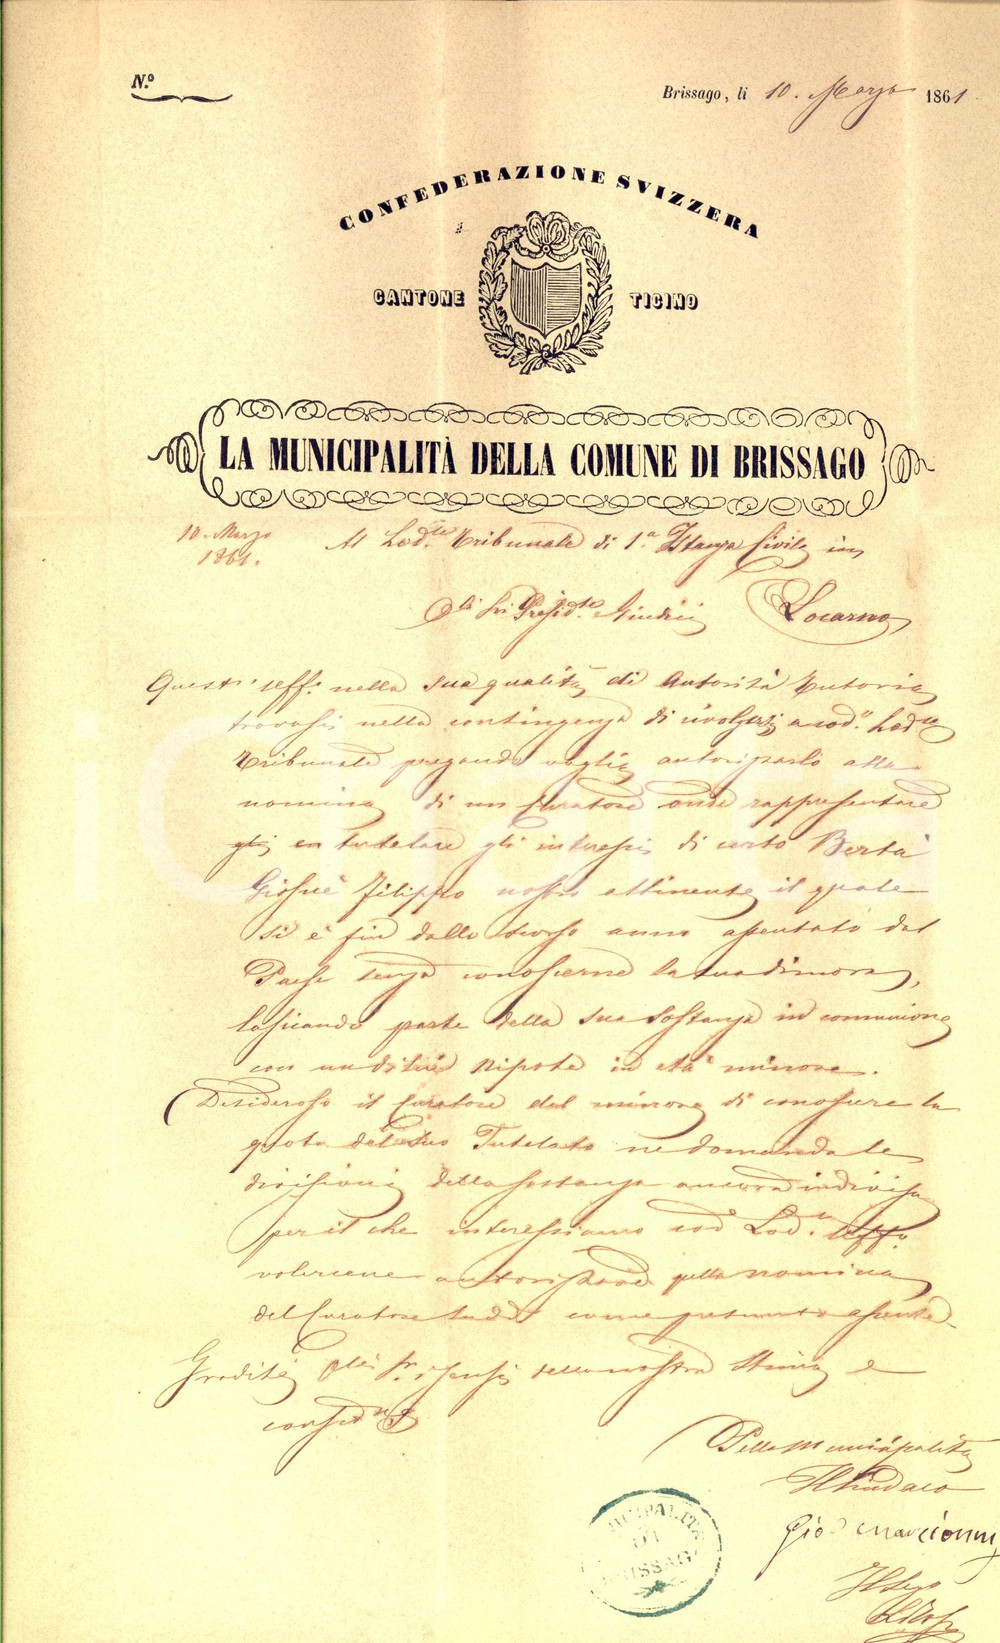 N.º
Brissago, li 10. Marzo 1861
CONFEDERAZIONE SVIZZERA
CANTONE TICINO
LA MUNICIPALITÀ DELLA COMUNE DI BRISSAGO
10. Marzo
1861.
Al Lod.te Tribunale di 1.a Istanza Civile in
Locarno
Sri Presid.te Giudici
nella sua qualità di Autorità Tutoria
trovasi nella contingenza di rivolgersi a cod.o Lod.te
Tribunale pregando voglia autorizzarlo alla
nomina di un Curatore onde rappresentare
tutelare gli interessi di certo Berta
Giosuè Filippo nostro attinente il quale
si è fin dallo scorso anno assentato dal
Paese senza conoscerne la sua dimora,
lasciando parte della sua sostanza in comunione
con un di lui Nipote in età minore.
Desideroso il Curatore del minore di conoscere la
quota del suo Tutelato ne domanda le
divisioni della sostanza ancora indivisa
per il che interessiamo cod.o Lod.
volercene autorizzare pella nomina
del Curatore come presunto assente.
Gradite sensi della nostra stima e
Pella Municipalità
Il Sindaco
Gio Marcionni
Il Seg.o
MUNICIPALITÀ
DI
BRISSAGO